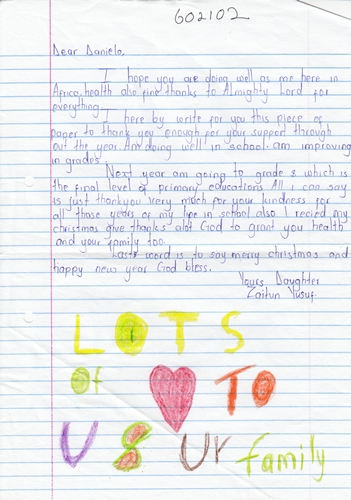 602102
Dear Danielo,
I hope you are doing well as me here in
Africa, health also fine thanks to Almighty Lord for
everything.
I here by write for you this piece of
paper to thank you enough for your support through
out the year. Am doing well in school. am improving
in grades.
Next year am going to grade 8 which is
the final level of primary educations All i can say
is just thankyou very much for your kindness for
all those years of my life in school also I recied my
christmas give thanks alot God to grant you health
and your family too.
Lasts word is to say merry christmas and
happy new year God bless.
Yours Daughter
Zaitun Yusuf.
LOTS
Of TO
U & Ur family